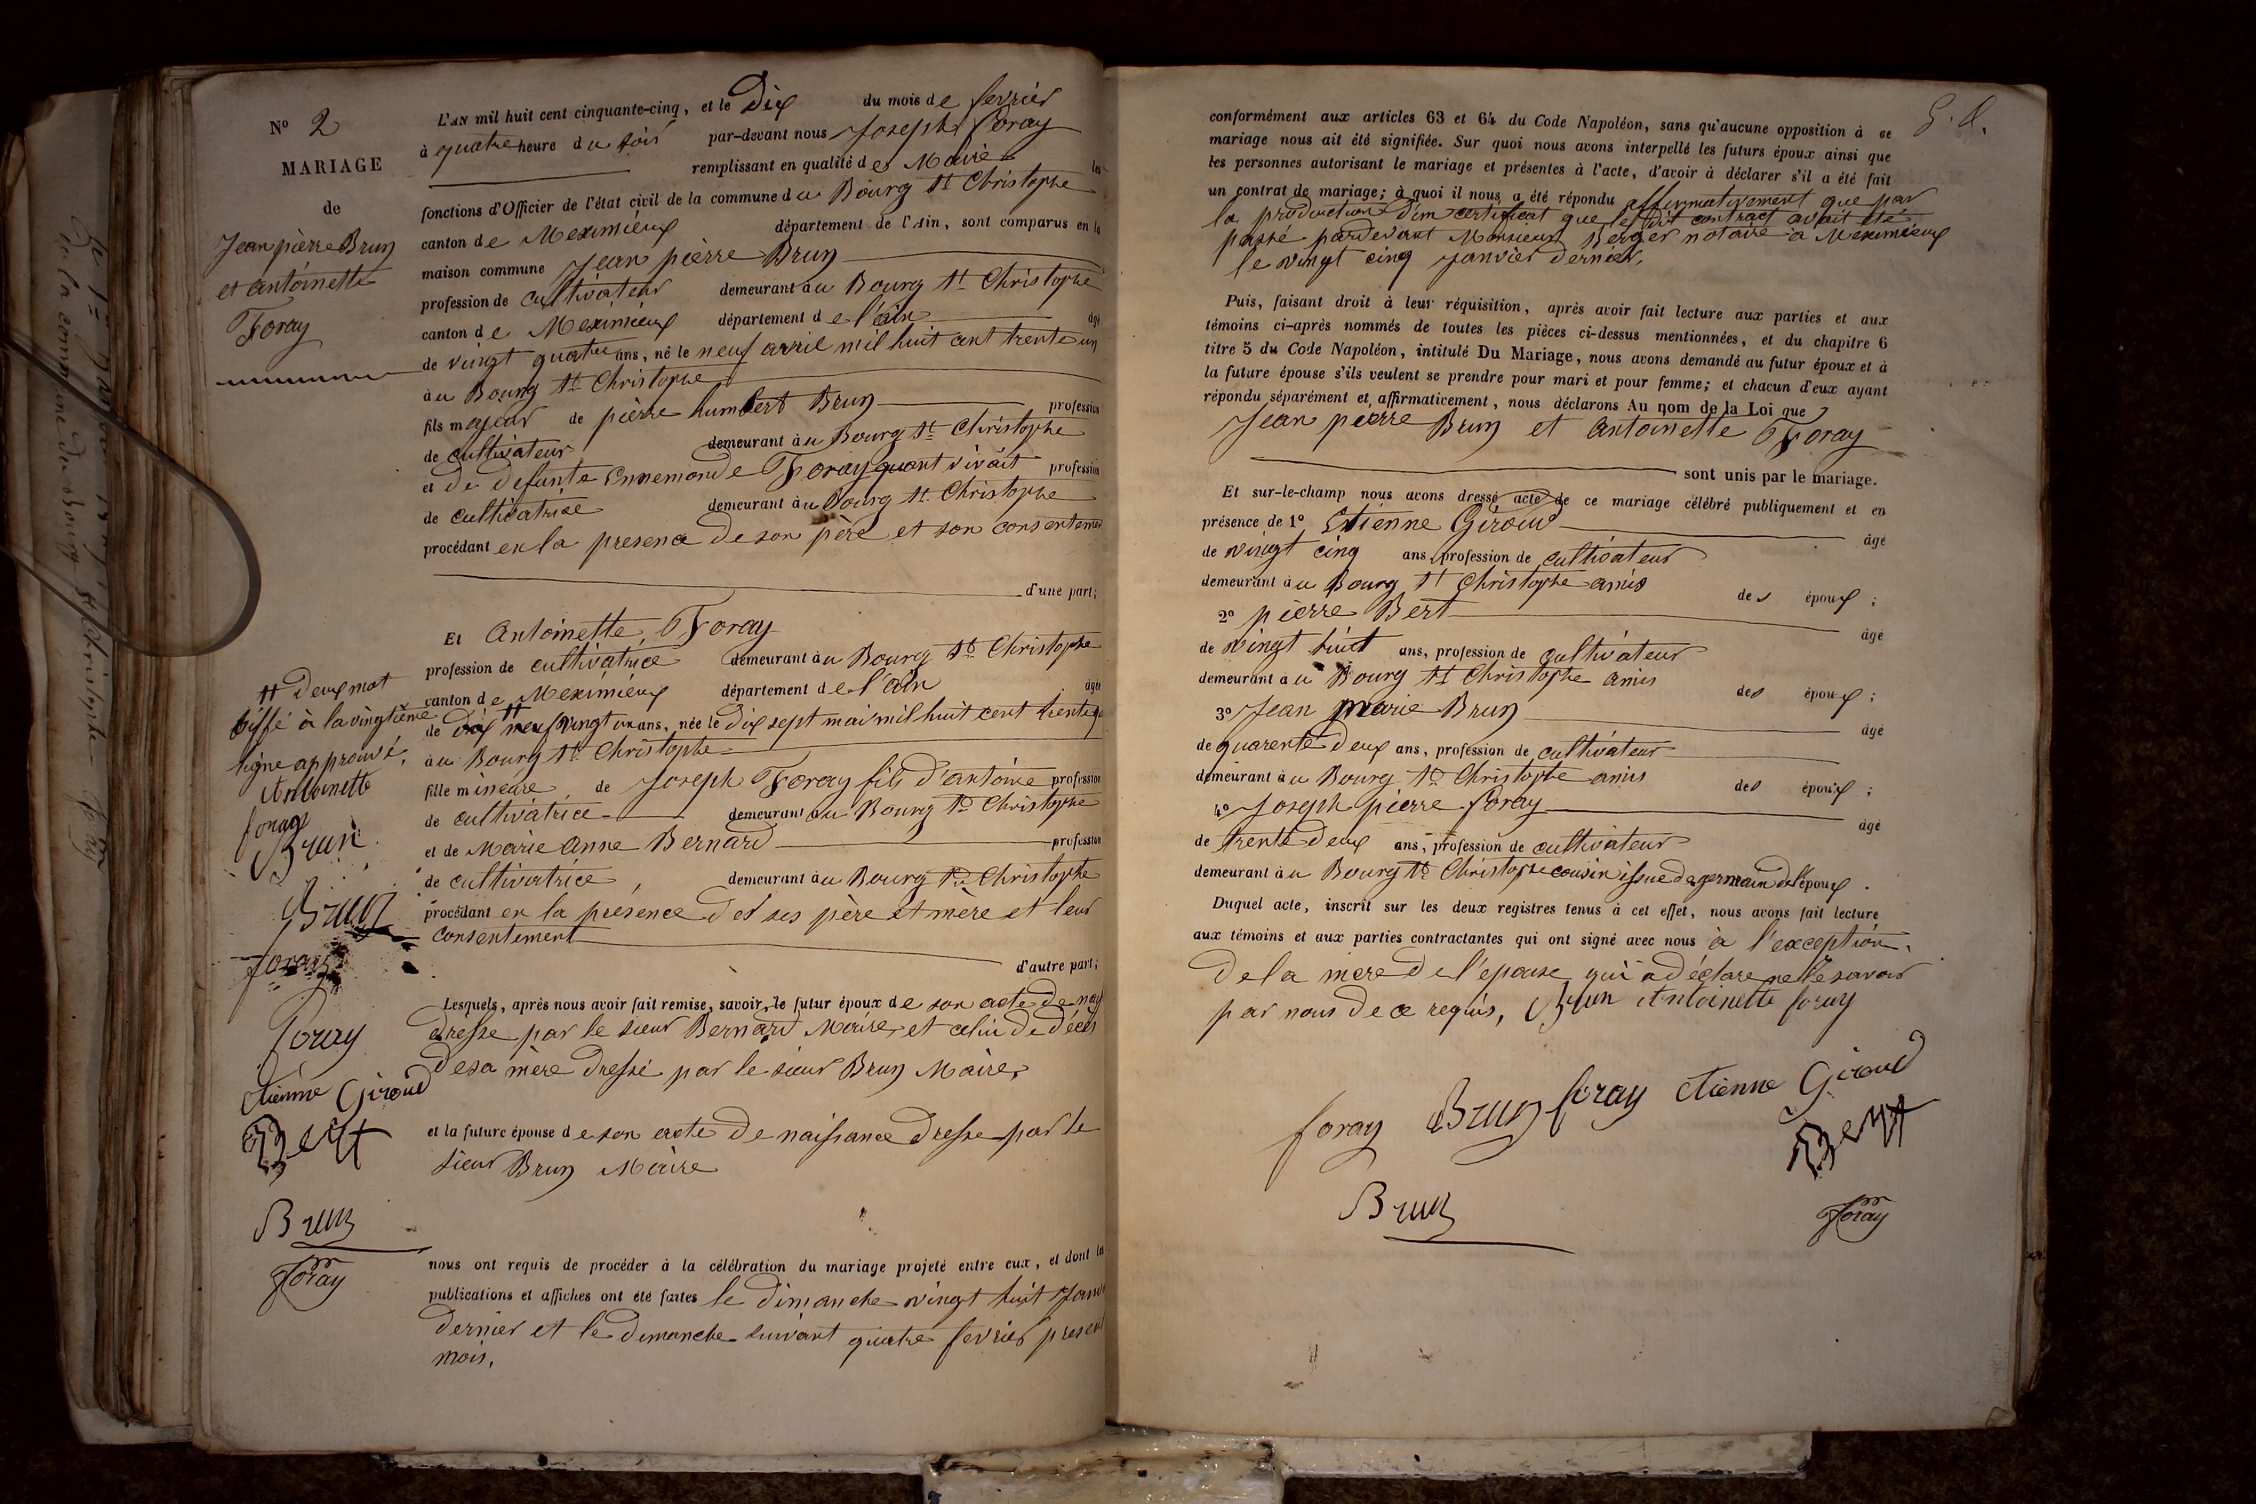 Nº 2
MARIAGE
de
Jean pierre Brun
et antoinette
Foray
L'AN mil huit cent cinquante-cinq, et le Dix du mois de fevrier
à quatre heure du soir par-devant nous Joseph foray
remplissant en qualité de Maire les
fonctions d'Officier de l'état civil de la commune du Bourg St Christophe
canton de Meximieux département de l'Ain, sont comparus en la
maison commune Jean pierre Brun
profession de cultivateur demeurant au Bourg St Christophe
canton de Meximieux département de l'ain âgé
de vingt quatre ans, né le neuf avril mil huit cent trente un
au Bourg St Christophe
fils majeur de pierre humbert Brun profession
de cultivateur demeurant au Bourg St Christophe
et de defunte Ennemonde Foray quant vivait profession
de cultivatrise demeurant au Bourg St Christophe
procédant en la presence de son père et son consenteme
d'une part;
Et Antoinette Foray
profession de cultivatrice demeurant au Bourg St Christophe
canton de Meximieux département de l'ain âgée
de dix neuf vingt un ans, née le dix sept mai mil huit cent trente
au Bourg St Christophe
fille mineure de Joseph Foray fils d'antoine profession
de cultivatrice demeurant au Bourg St Christophe
et de Marie anne Bernard profession
de cultivatrice demeurant au Bourg St Christophe
procédant en la presence des ses père et mère et leur
consentement
d'autre part;
Lesquels, après nous avoir fait remise, savoir, le futur époux de son acte de
dresse par le sieur Bernard Maire et celui de décès
de sa mère dressé par le sieur Brun Maire,
et la future épouse de son acte de naissance dresse par le
sieur Brun Maire
nous ont requis de procéder à la célébration du mariage projeté entre eux, et dont les
publications et affiches ont été faites le dimanche vingt huit Janvi
dernier et le dimanche suivant quatre fevrier present
mois,
tt deux mot
biffé à la vingtième
ligne approuvé,
Antoinette
foray
Brun
Brun
foray
foray
etienne Giroud
Bert
Brun
foray
conformément aux articles 63 et 64 du Code Napoléon, sans qu'aucune opposition à ce
mariage nous ait été signifiée. Sur quoi nous avons interpellé les futurs époux ainsi que
les personnes autorisant le mariage et présentes à l'acte, d'avoir à déclarer s'il a été fait
un contrat de mariage; à quoi il nous a été répondu affirmativement que par
la production d'un certificat que le dit contract avait été
passé pardevant Monsieur Berger notaire a Meximieux
le vingt cinq Janvier dernier,
Puis, faisant droit à leur réquisition, après avoir fait lecture aux parties et aux
témoins ci-après nommés de toutes les pièces ci-dessus mentionnées, et du chapitre 6
titre 5 du Code Napoléon, intitulé Du Mariage, nous avons demandé au futur époux et à
la future épouse s'ils veulent se prendre pour mari et pour femme; et chacun d'eux ayant
répondu séparément et affirmativement, nous déclarons Au nom de la Loi que
Jean pierre Brun et Antoinette Foray
sont unis par le mariage.
Et sur-le-champ nous avons dressé acte de ce mariage célébré publiquement et en
présence de 1º Etienne Giroud âgé
de vingt cinq ans, profession de cultivateur
demeurant au Bourg St Christophe amis des époux ;
2º pierre Bert âgé
de vingt huit ans, profession de cultivateur
demeurant au Bourg St Christophe amis des époux ;
3º Jean marie Brun âgé
de quarente deux ans, profession de cultivateur
demeurant au Bourg St Christophe amis des époux ;
4º Joseph pierre foray âgé
de trente deux ans, profession de cultivateur
demeurant au Bourg St Christophe cousin issue de germain de l'époux .
Duquel acte, inscrit sur les deux registres tenus à cet effet, nous avons fait lecture
aux témoins et aux parties contractantes qui ont signé avec nous à l'exception,
de la mere de l'epouse qui a déclare ne le savoir
par nous de ce requis, Brun Antoinette foray
foray Brun foray etienne Giroud
Bert
Brun
foray